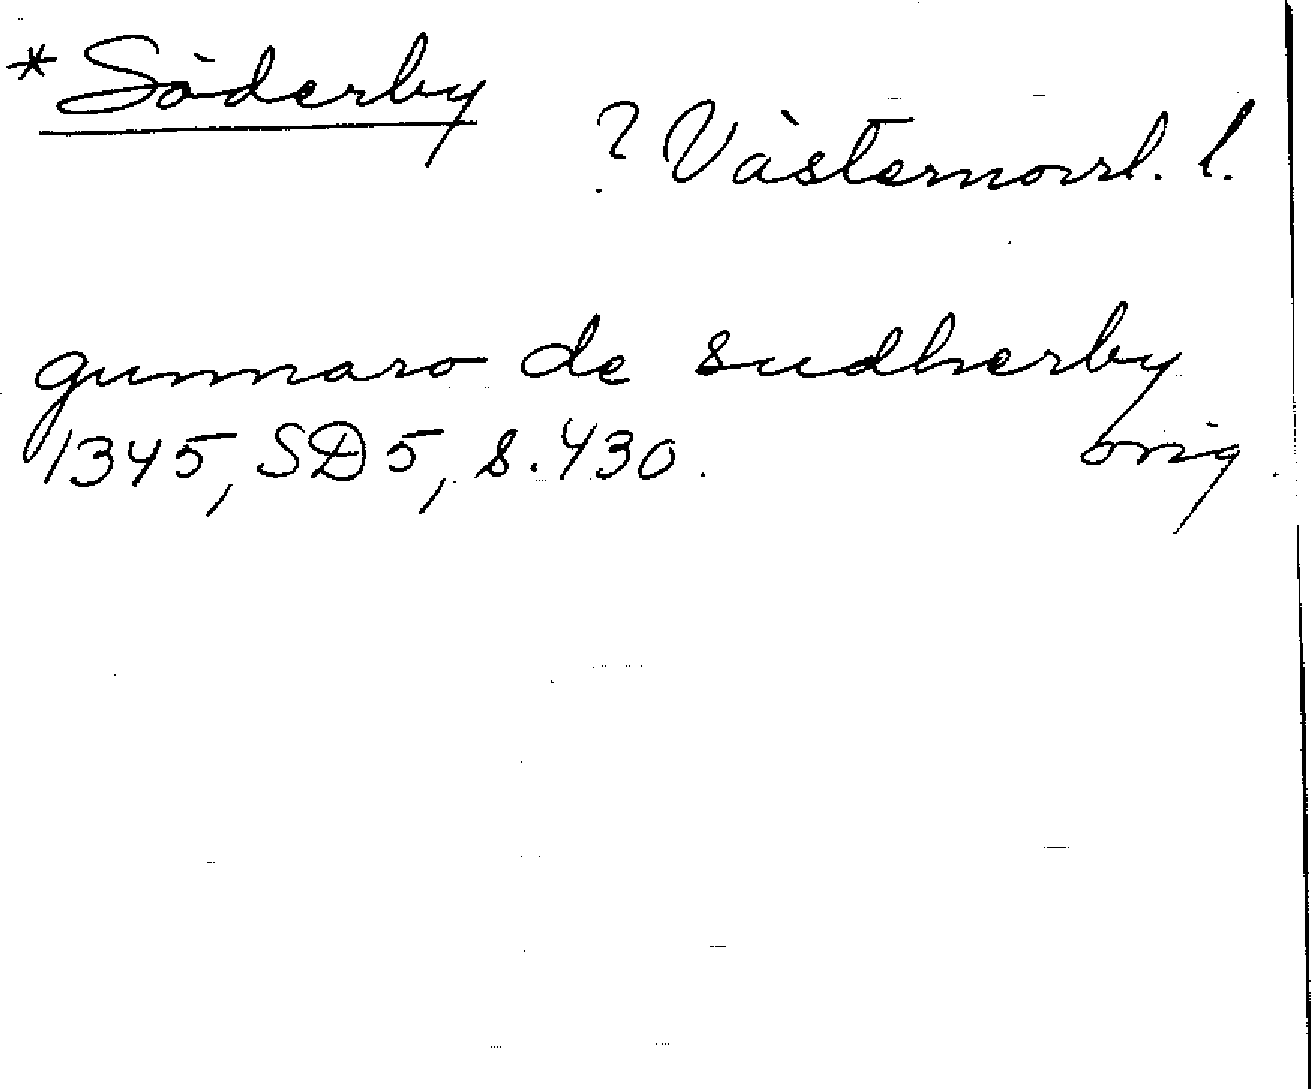 *Söderby
? Västernorrl. l.
gunnaro de sudherby
1345, SD5, s. 430. orig.